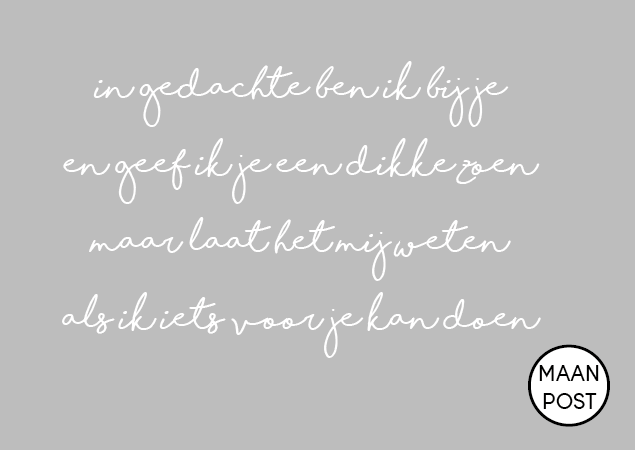 in gedachte ben ik bij je
en geef ik je een dikke zoen
maar laat het mij weten
als ik iets voor je kan doen
MAAN
POST